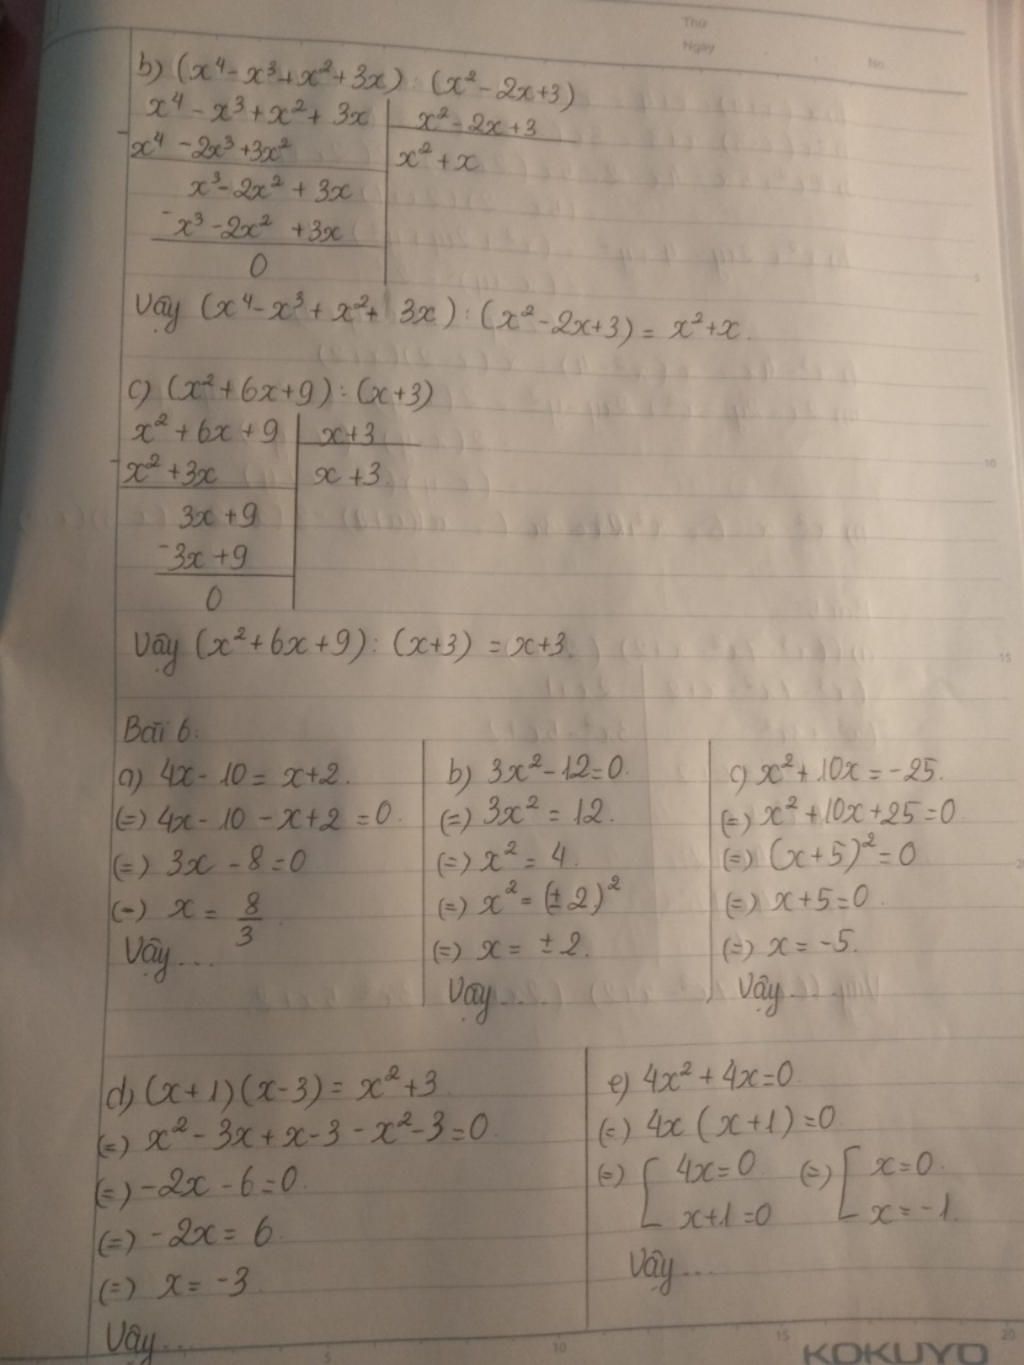 Thứ
Ngày
No.
b) (x⁴ - x³ + x² + 3x) : (x² - 2x + 3)
x⁴ - x³ + x² + 3x | x² - 2x + 3
- x⁴ - 2x³ + 3x² | x² + x
x³ - 2x² + 3x
- x³ - 2x² + 3x
0
Vậy (x⁴ - x³ + x² + 3x) : (x² - 2x + 3) = x² + x.
c) (x² + 6x + 9) : (x + 3)
x² + 6x + 9 | x + 3
- x² + 3x | x + 3
3x + 9
- 3x + 9
0
Vậy (x² + 6x + 9) : (x + 3) = x + 3.
Bài 6:
a) 4x - 10 = x + 2.
(=) 4x - 10 - x + 2 = 0.
(=) 3x - 8 = 0
(=) x = 8/3.
Vậy...
b) 3x² - 12 = 0.
(=) 3x² = 12.
(=) x² = 4.
(=) x² = (± 2)²
(=) x = ± 2.
Vậy...
c) x² + 10x = -25.
(=) x² + 10x + 25 = 0
(=) (x + 5)² = 0
(=) x + 5 = 0.
(=) x = -5.
Vậy...
d) (x + 1)(x - 3) = x² + 3
(=) x² - 3x + x - 3 - x² - 3 = 0.
(=) -2x - 6 = 0.
(=) -2x = 6.
(=) x = -3
Vậy...
e) 4x² + 4x = 0.
(=) 4x (x + 1) = 0.
(=) [ 4x = 0 (=) [ x = 0.
x + 1 = 0 x = -1.
Vậy...
5
10
15
20
5 10 15 20
KOKUYO